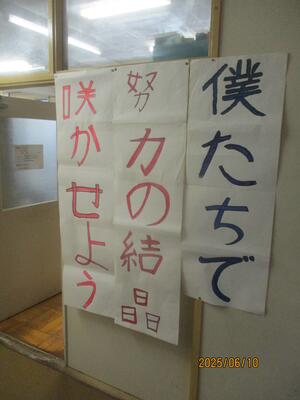 僕たちで
努力の結晶
咲かせよう
2025/06/10